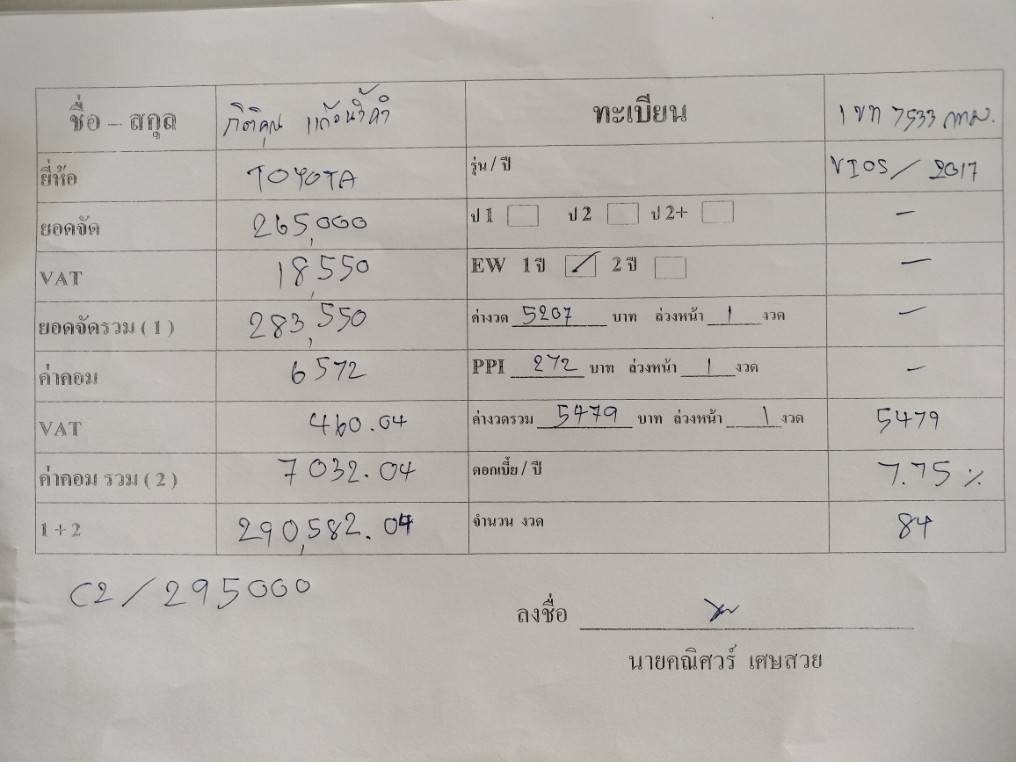 ชื่อ – สกุล ทะเบียน 1 ขก 7533 กทม.
ยี่ห้อ TOYOTA รุ่น / ปี VIOS / 2017
ยอดจัด 265,000 ป 1 ป 2 ป 2+ –
VAT 18,550 EW 1 ปี / 2 ปี –
ยอดจัดรวม ( 1 ) 283,550 ค่างวด 5207 บาท ล่วงหน้า 1 งวด –
ค่าคอม 6572 PPI 272 บาท ล่วงหน้า 1 งวด –
VAT 460.04 ค่างวดรวม 5479 บาท ล่วงหน้า 1 งวด 5479
ค่าคอม รวม ( 2 ) 7032.04 ดอกเบี้ย / ปี 7.75 %
1 + 2 290,582.04 จำนวน งวด 84
C2 / 295000
ลงชื่อ
นายคณิศวร์ เศษสวย